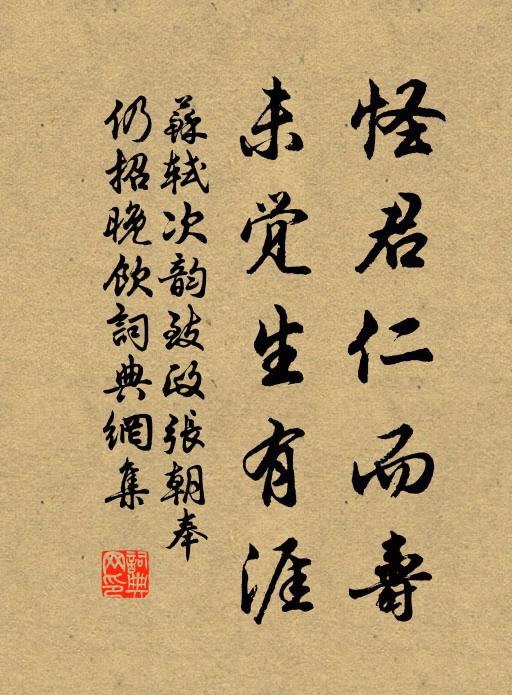 怪君仁而壽
未觉生有涯
蘇軾次韵致政張朝奉
仍招晚飲詞典網集
詞典網印